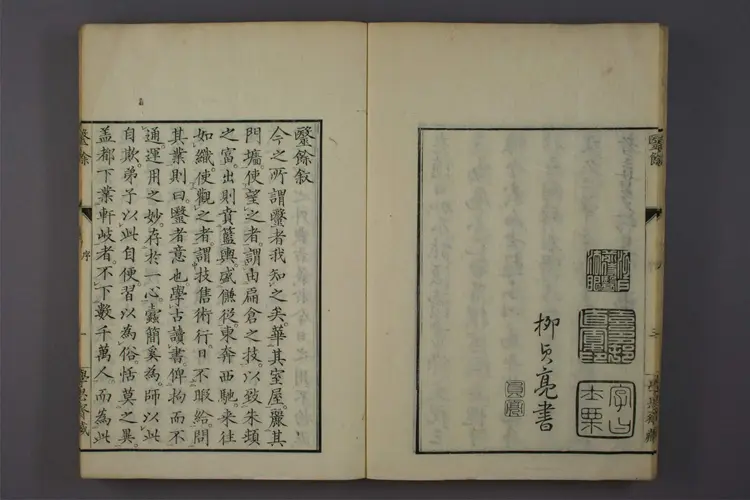 毉餘
柳貞亮書
貞亮
毉餘叙
今之所謂毉者我知之矣華其室屋麗其
門墻使望之者謂由扁倉之技以致朱頓
之富出則賁籃輿盛傔從東奔西馳來往
如織使觀之者謂技售術行日不暇給問
其業則曰毉者意也學古讀書俾拘而不
通運用之妙存於一心蠹簡奚為師以此
自欺弟子以此自便習以為俗恬莫之異
盖都下業軒岐者不下數千萬人而為此
毉餘
序
一